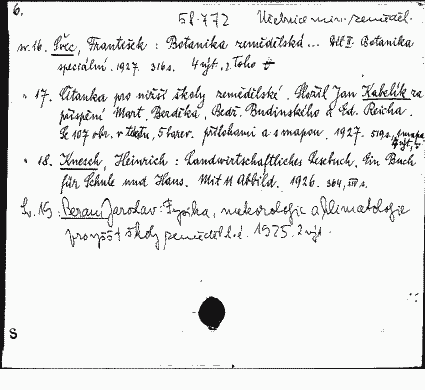 6.
58.772 Učebnice min. zeměděl.
sv. 16. Švec, František : Botanika zemědělská... Díl II. Botanika
speciální. 1927. 316 s. 4 výt., 2. Toho
" 17. Čítanka pro nižší školy zemědělské. Složil Jan Kabelík za
přispění Mart. Berdika, Bedř. Budínského a Ed. Reicha.
Se 107 obr. v textu, 5 barev. přílohami a s mapou. 1927. 519 s. 1 mapa
4 výt.
" 18. Knesch, Heinrich : Landwirtschaftliches Lesebuch. Ein Buch
für Schule und Haus. Mit 11 Abbild. 1926. 364, s.
Sv. 19: Beran Jaroslav: Fysika, meteorologie a klimatologie
pro školy zeměděl 1925. 2 výt.
S